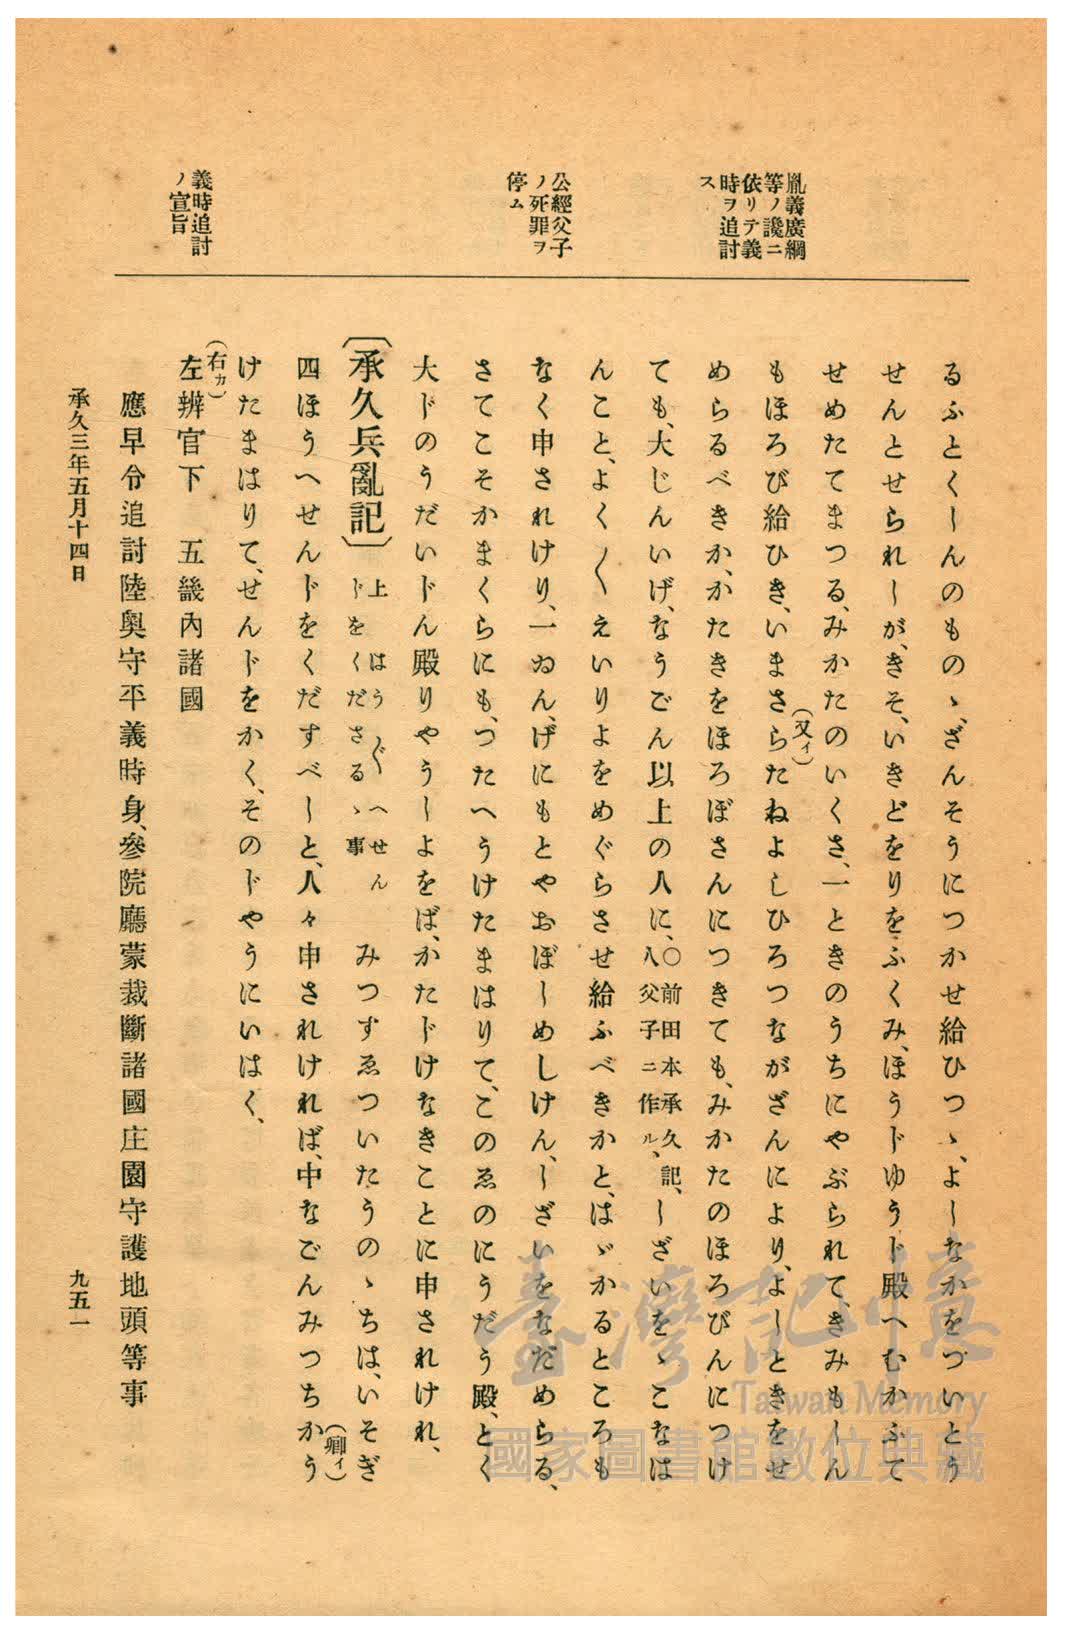 胤義廣綱
等ノ讒ニ
依リテ義
時ヲ追討
ス
公經父子
ノ死罪ヲ
停ム
義時追討
ノ宣旨
るふとくしんのものゝ、ざんそうにつかせ給ひつゝ、よしなかをつひいとう
せんとせられしが、きそ、いきどをりをふくみ、ほうドゆうド殿へむかふて
せめたてまつる、みかたのいくさ、一ときのうちにやぶられて、きみもしん
もほろび給ひき、いまさら(又イ)たねよしひろつながざんにより、よしときをせ
めらるべきか、かたきをほろぼさんにつきても、みかたのほろびんにつけ
ても、大じんいげ、なうごん以上の人に、〇前田本承久記、八父子ニ作ル、しざいをゝこなは
んこと、よく〳〵えいりよをめぐらさせ給ふべきかと、はゞかるところも
なく申されけり、一ゐん、げにもとやおぼしめしけん、しざいをなだめらる、
さてこそかまくらにも、つたへうけたまはりて、このゑのにうだう殿、とく
大ドのうだいドん殿りやうしよをば、かたドけなきことに申されけれ、
〔承久兵亂記〕上 はうぐへせんドをくださるゝ事 みつすゑついたうのゝちは、いそぎ
四ほうへせんドをくだすべしと、人々申されければ、中なごんみつちかう(卿イ)
けたまはりて、せんドをかく、そのドやうにいはく、
左(右カ)辨官下 五畿內諸國
應早令追討陸奧守平義時身、參院廳蒙裁斷諸國庄園守護地頭等事
承久三年五月十四日
九五一
臺灣記憶
Taiwan Memory
國家圖書館數位典藏